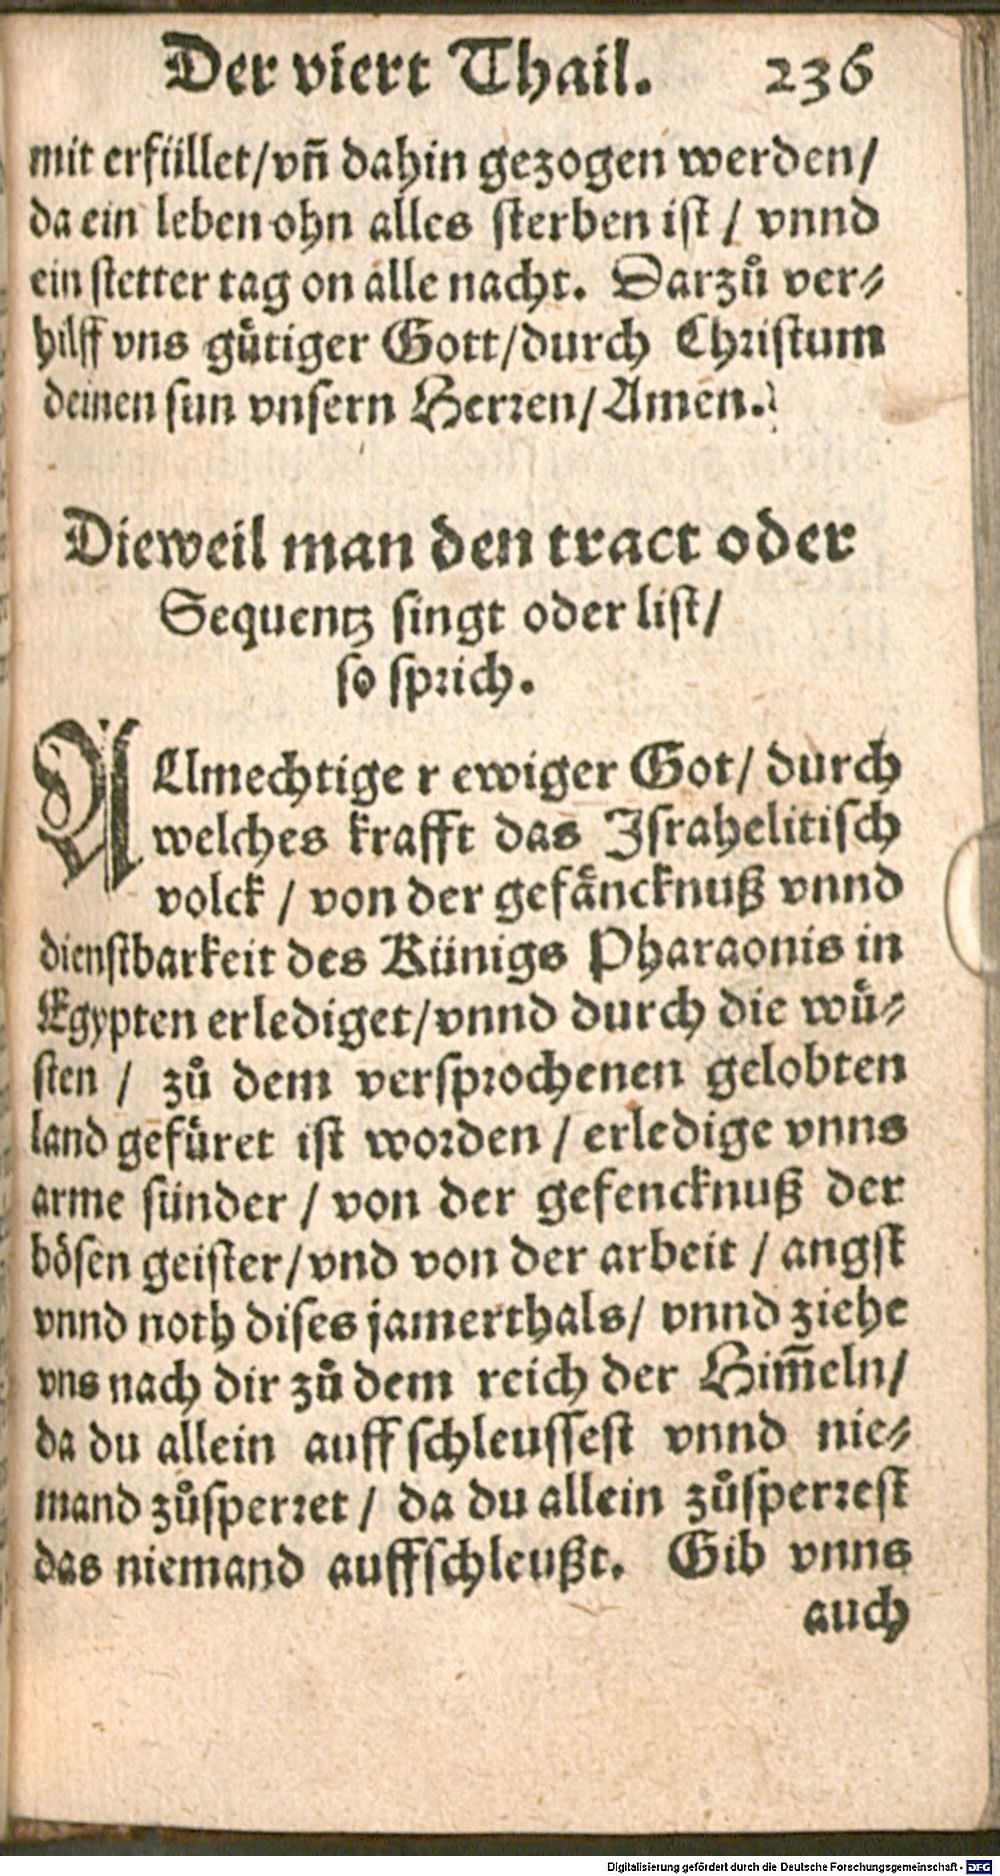 Der viert Thail. 236
mit erfüllet/vñ dahin gezogen werden/
da ein leben ohn alles sterben ist / vnnd
ein stetter tag on alle nacht. Darzů ver⸗
hilff vns gůtiger Gott/durch Christum
deinen sun vnsern Herren/Amen.
Dieweil man den tract oder
Sequentz singt oder list/
so sprich.
ALlmechtiger ewiger Got/ durch
welches krafft das Israhelitisch
volck / von der gefäncknuß vnnd
dienstbarkeit des Künigs Pharaonis in
Egypten erlediget/vnnd durch die wů⸗
sten / zů dem versprochenen gelobten
land gefůret ist worden / erledige vnns
arme sünder / von der gefencknuß der
bösen geister/vnd von der arbeit / angst
vnnd noth dises jamerthals/ vnnd ziehe
vns nach dir zů dem reich der Him̃eln/
da du allein auffschleussest vnnd nie⸗
mand zůsperret / da du allein zůsperrest
das niemand auffschleußt. Gib vnns
auch
Digitalisierung gefördert durch die Deutsche Forschungsgemeinschaft - DFG